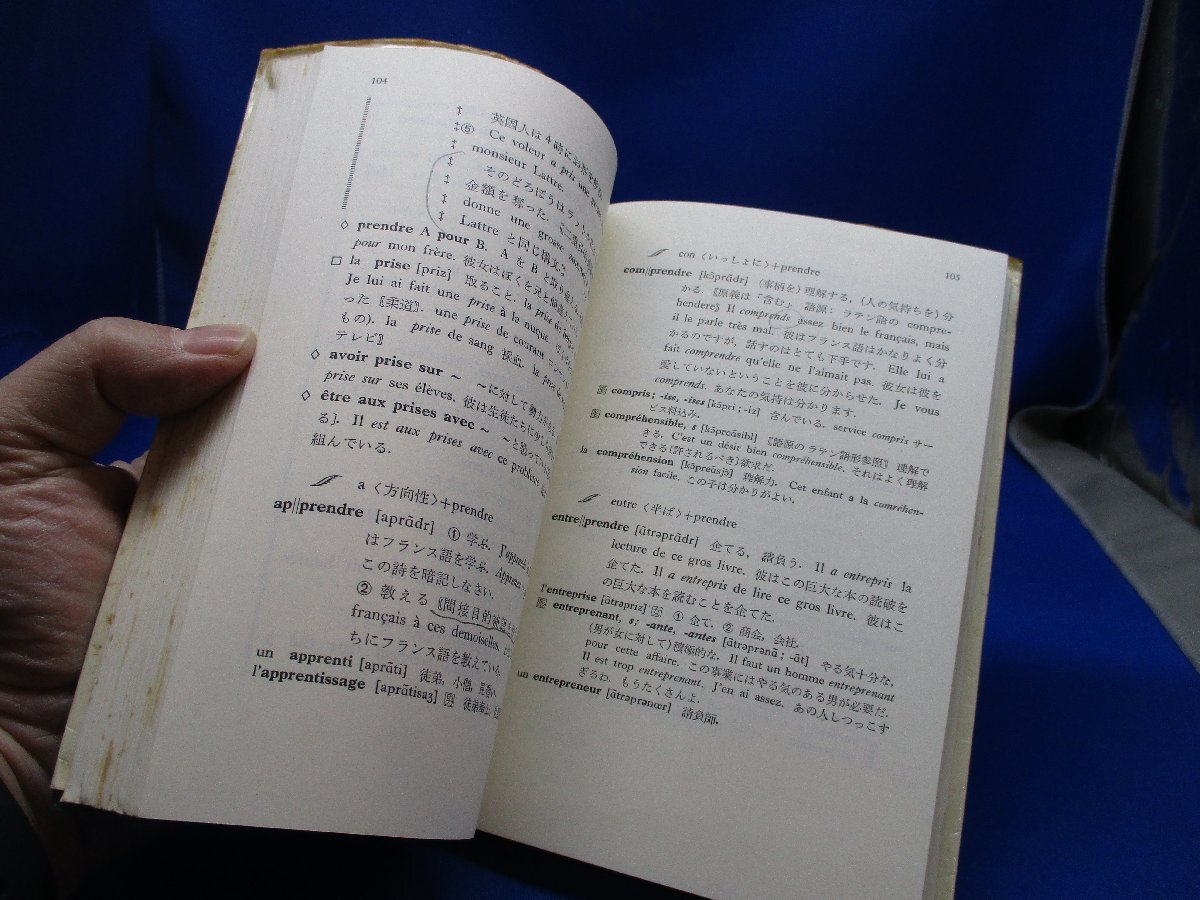 104
英国人は4時にお茶を飲む
‡⑤ Ce voleur a pris une
monsieur Lattre.
そのどろぼうはラットル
金額を奪った.
donne une grosse
Lattre と同じ構文.
◇ prendre A pour B. A を B と取り違え
pour mon frère. 彼女はぼくを兄と間違
□ la prise [priz] 取ること. la prise de
Je lui ai fait une prise à la nuque.
った〘柔道〙. une prise de courant コンセント
もの). la prise de sang 採血. la prise de
テレビ〙
◇ avoir prise sur ~ ~に対して勢力が
prise sur ses élèves. 彼は生徒たちに少しも
◇ être aux prises avec ~ ~と戦っている
る]. Il est aux prises avec ce problème
組んでいる.
a〈方向性〉+prendre
ap||prendre [aprɑ̃dr] ① 学ぶ. J'apprends
はフランス語を学ぶ. Apprenez
この詩を暗記しなさい.
② 教える〘間接目的補語
français à ces demoiselles.
ちにフランス語を教えている.
un apprenti [aprɑ̃ti] 徒弟, 小僧, 見習い
l'apprentissage [aprɑ̃tisaʒ] 男 徒弟
105
con〈いっしょに〉+prendre
com||prendre [kɔ̃prɑ̃dr] (事柄を)理解する, (人の気持ちを)分
かる.〘原義は「含む」 語源: ラテン語の compre-
hendere〙 Il comprends assez bien le français, mais
il le parle très mal. 彼はフランス語はかなりよく分
かるのですが, 話すのはとても下手です. Elle lui a
fait comprendre qu'elle ne l'aimait pas. 彼女は彼を
愛していないということを彼に分からせた. Je vous
comprends. あなたの気持は分かります.
形 compris ; -ise, -ises [kɔ̃pri ; -iz] 含んでいる. service compris サー
ビス料込み.
形 compréhensible, s [kɔ̃preɑ̃sibl] 〘語源のラテン語形参照〙 理解で
きる. C'est un désir bien compréhensible. それはよく理解
できる(許されるべき)欲求だ.
la compréhension [kɔ̃preɑ̃sjɔ̃] 理解力. Cet enfant a la comréhen-
sion facile. この子は分かりがよい.
entre〈半ば〉+prendre
entre||prendre [ɑ̃trəprɑ̃dr] 企てる, 請負う. Il a entrepris la
lecture de ce gros livre. 彼はこの巨大な本の読破を
企てた. Il a entrepris de lire ce gros livre. 彼はこ
の巨大な本を読むことを企てた.
l'entreprise [ɑ̃trəpriz] 女 ① 企て. ② 商会, 会社.
形 entreprenant, s ; -ante, -antes [ɑ̃trəprənɑ̃ ; -ɑ̃t] やる気十分な,
(男が女に対して)積極的な. Il faut un homme entreprenant
pour cette affaire. この事業にはやる気のある男が必要だ.
Il est trop entreprenant. J'en ai assez. あの人しつっこす
ぎるわ. もうたくさんよ.
un entrepreneur [ɑ̃trəprənœr] 請負師.